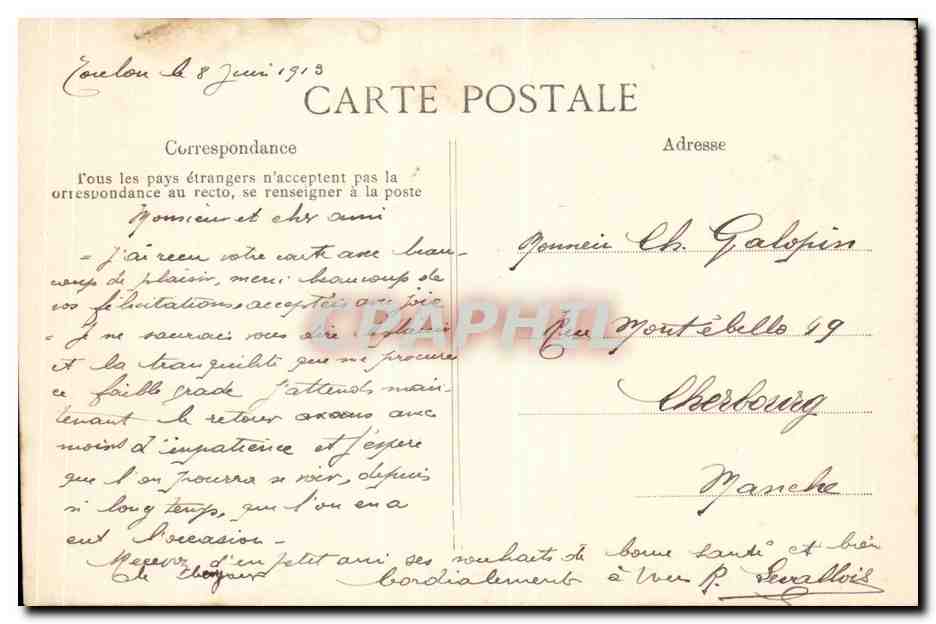 Toulon le 8 Juin 1913
CARTE POSTALE
Correspondance
Tous les pays étrangers n'acceptent pas la
orrespondance au recto, se renseigner à la poste
Adresse
Monsieur et cher ami
J'ai reçu votre carte avec beau-
coup de plaisir, merci beaucoup de
vos félicitations acceptées avec joie
Je ne saurais vous dire le plaisir
et la tranquilité que me procure
ce faible grade J'attends main-
tenant le retour avec
moins d'impatience et J'espère
que l'on pourra se voir, depuis
si longtemps, que l'on en a
eut l'occasion -
Recevez d'un petit ami ses souhaits de bonne santé et bien
le
cordialement à vous R. Levallois
Monsieur Ch. Galopin
Rue Montébello 49
Cherbourg
Manche
CPAPHIL